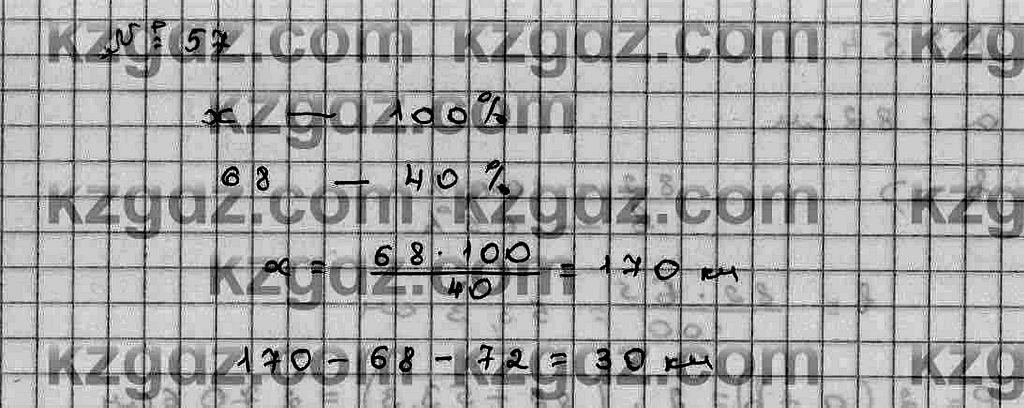 № 57
x — 100%
68 — 40%
x = 68 · 100 / 40 = 170 км
170 - 68 - 72 = 30 км
kzgdz.com kzgdz.com kzg
kzgdz.com
kzgdz.com kzgdz.com kzg
kzgdz.com
kzgdz.com kzgdz.com kzg